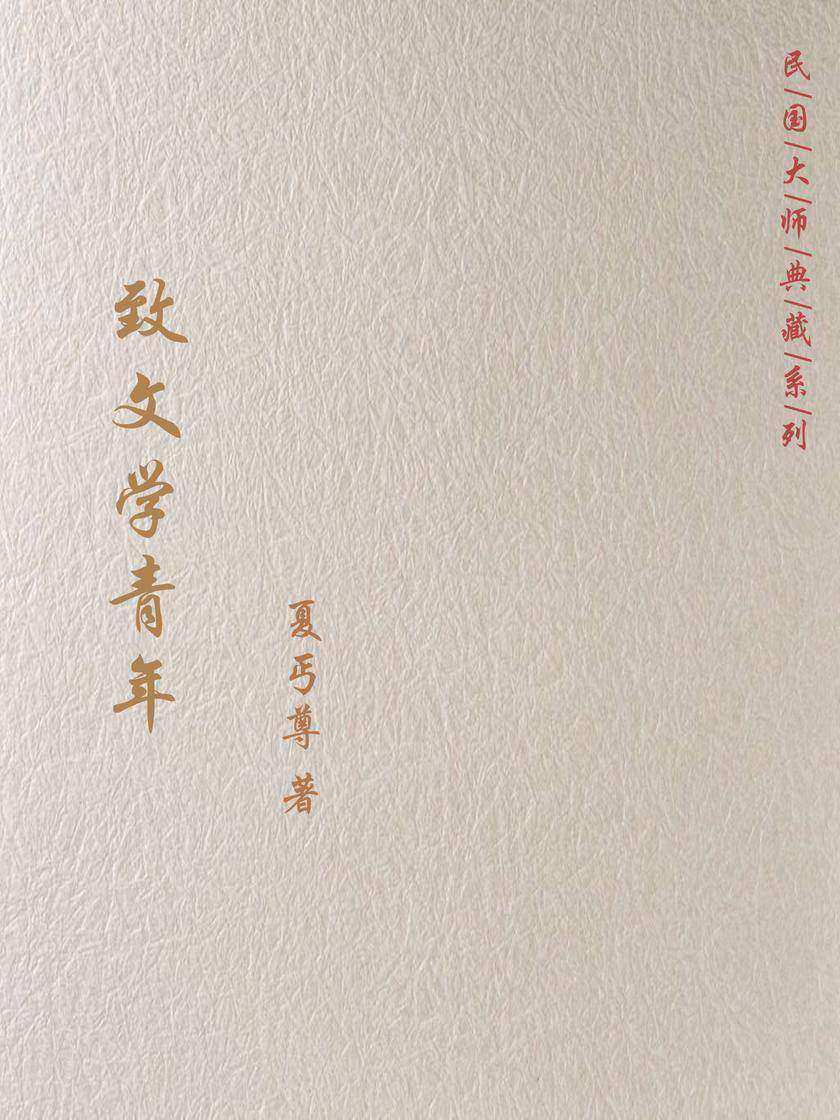 民|国|大|师|典|藏|系|列
致文学青年
夏丏尊 著